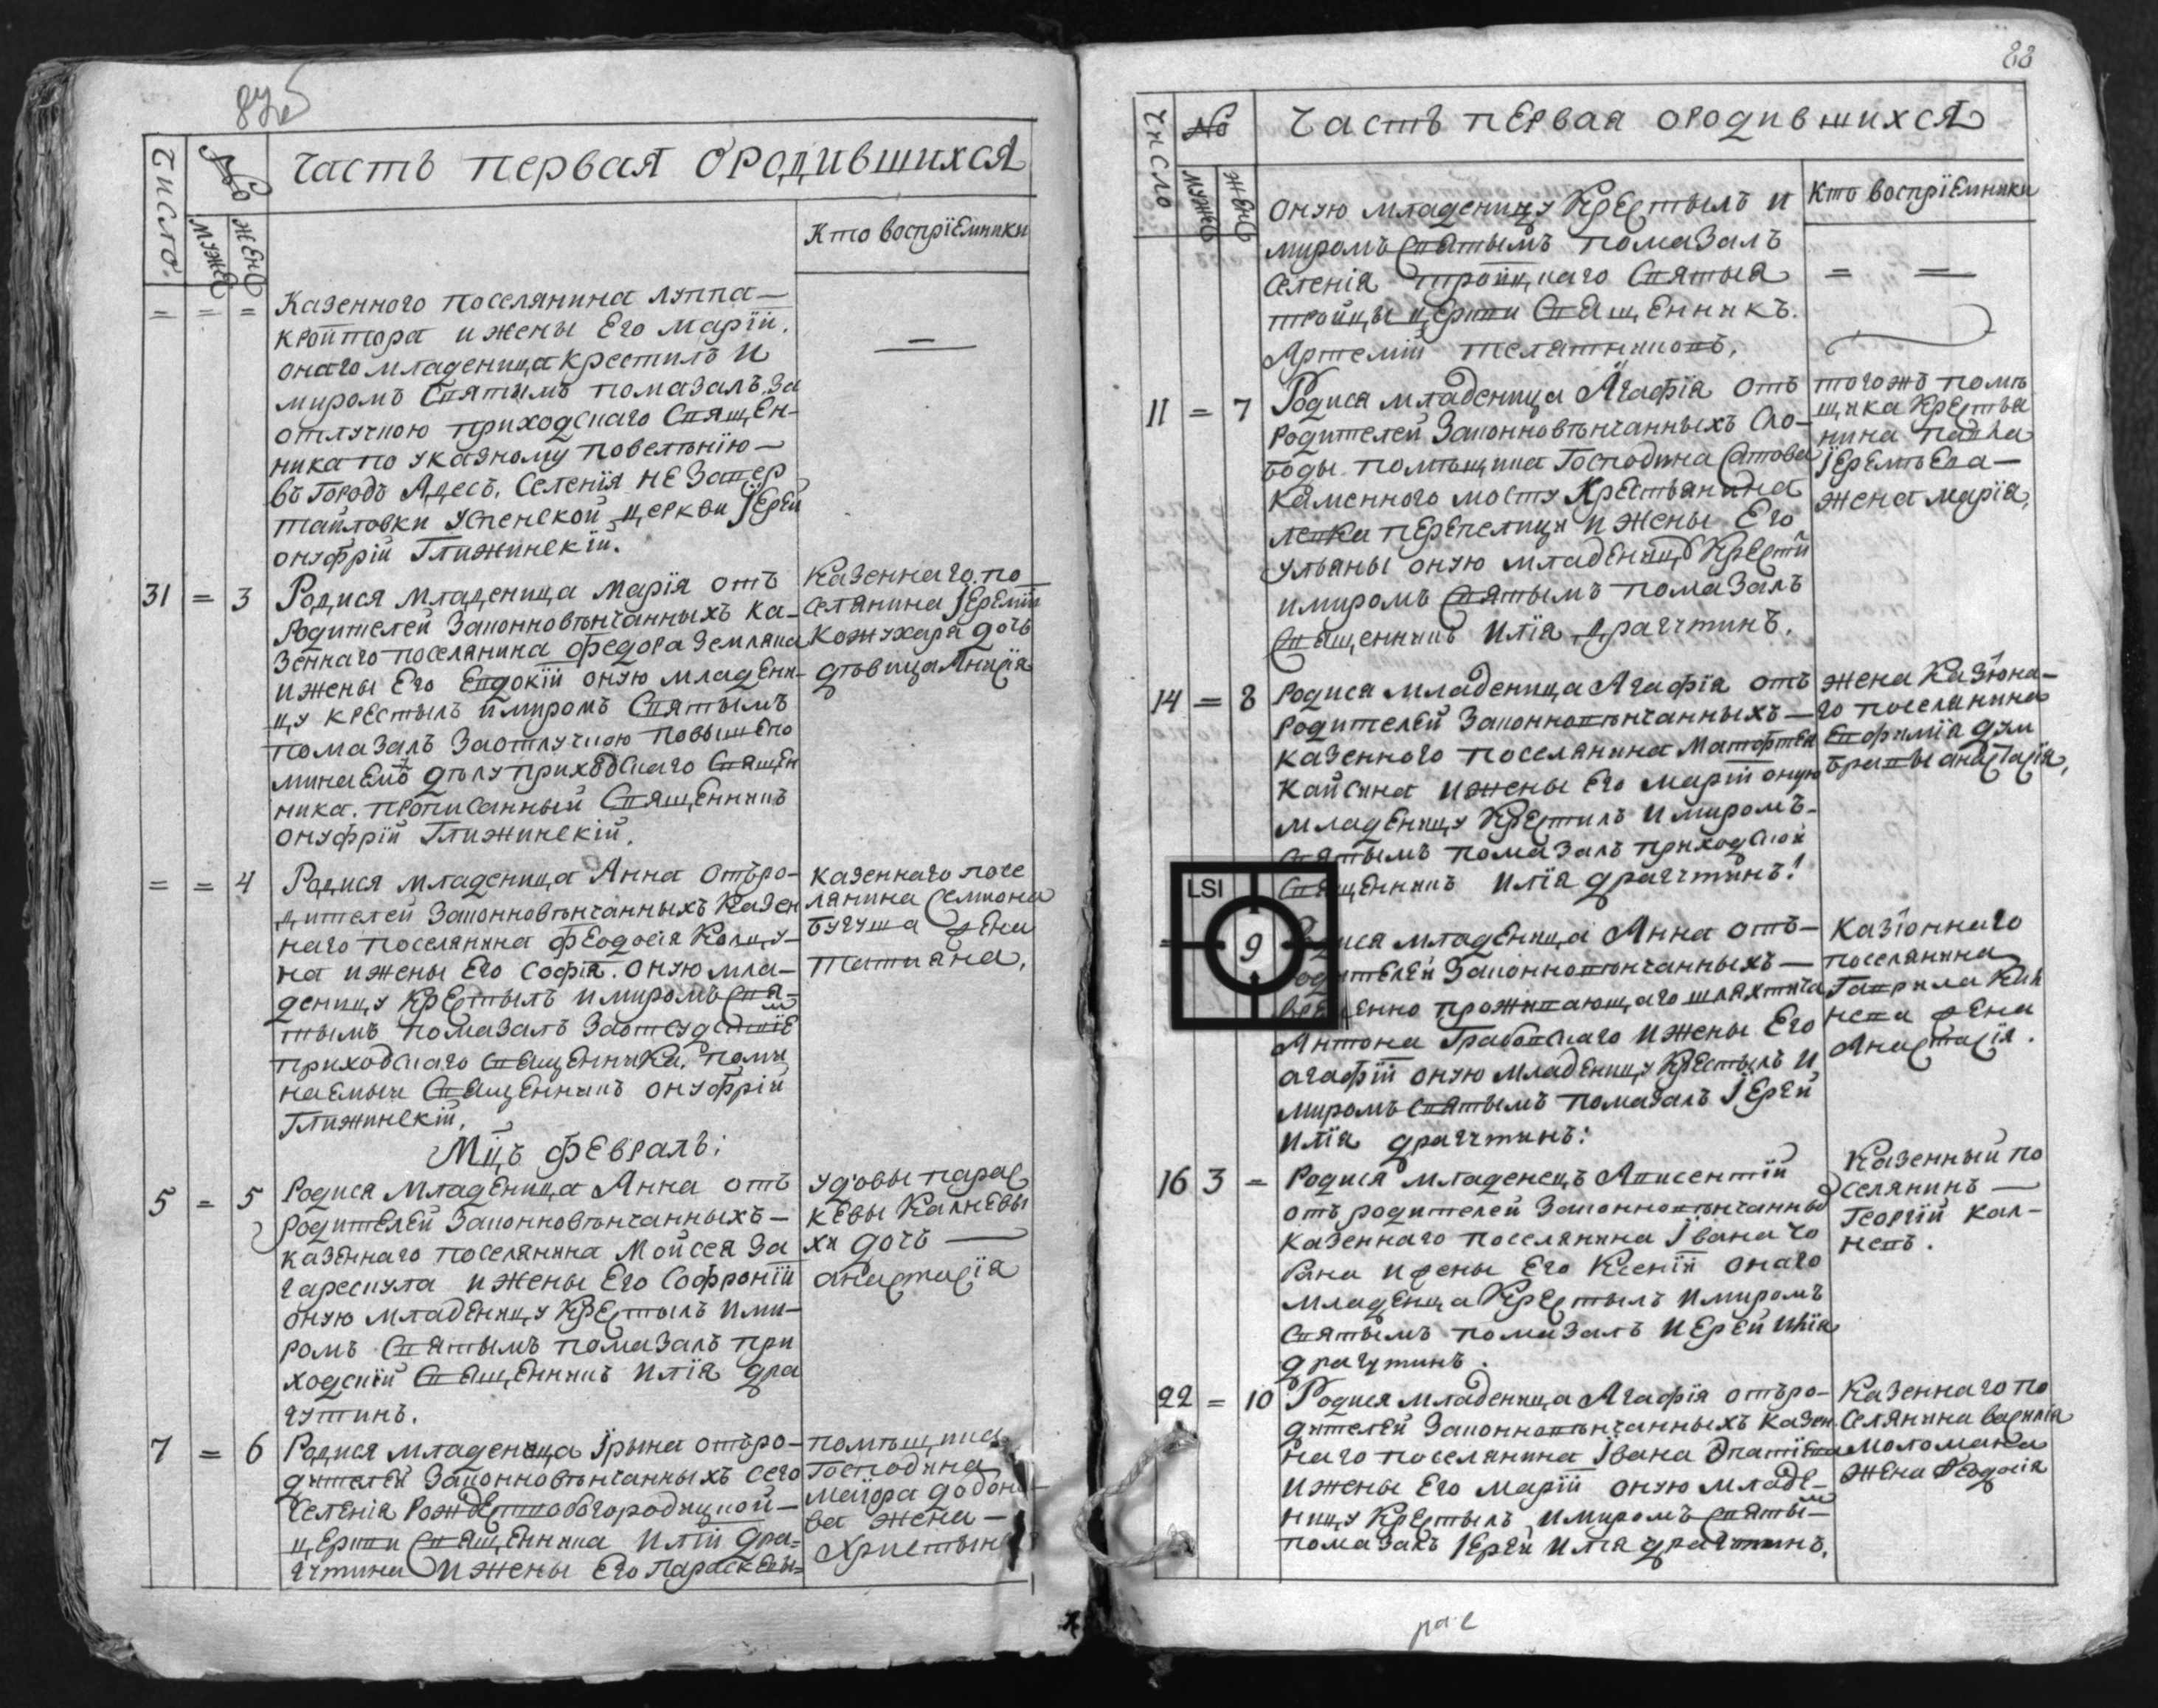 87об
Число.
№
мужес
женс
Часть первая ородившихся
Кто воспріемники
= = =
Казенного поселянина луппа —
кройтора и жены Его маріи.
онаго младеница крестилъ и
миромъ Святымъ помазалъ. За
отлучкою приходскаго Свящ,Ен-
ника по указному повелѣнію —
въ городъ Адесъ. Селенія
тайловки успенской церкви Іерей
онуфрій Глижинскій.
—
31 = 3
Родися младеница марія отъ
Родителей Законновѣнчанныхъ ка-
зеннаго поселянина федора Земляка
и жены Его Евдокіи оную младени-
цу крестылъ и миромъ Святымъ
помазалъ За отлучкою
дѣлу приходскаго Священ
ника. прописанный Священникъ
онуфрій Глижинскій.
Казеннаго по
селянина Іереміи
Кожухаря дочь
дѣвица Аниція
= = 4
Родися младеница Анна отъро-
дителей Законновѣнчанныхъ Казен
наго поселянина феодосія Колцу-
на и жены Его Софіи. оную мла-
деницу Крестылъ и миромъ Свя-
тымъ помазалъ За отсудствіе
приходскаго Священника. поми
наемыи Священникъ онуфрій
Глижинскій.
казеннаго посе
лянина Семиона
Бугуша жена
Татиана.
Мцъ февраль:
5 = 5
Родися Младеница Анна отъ
родителей Законновѣнчанныхъ —
казеннаго поселянина Мойсея За
гарескула и жены Его Софроніи
оную младеницу Крестылъ и ми-
ромъ Святымъ помазалъ при
ходскій Священникъ Илія дра
гутинъ.
удовы парас
кевы Калневы
хи дочь —
анастасія
7 = 6
Родися младеница Ірына отъро-
дителей Законновѣнчанныхъ сего
селенія Рождествобогородицкой —
церкви Священника Иліи дра-
гутина и жены Его Параскевы=
помѣщика
Господина
маіора додоно-
ва жена —
Христын
88
Число
№
мужес
женс
Часть первая ородившихся
Кто воспріемники
оную младеницу Крестылъ и
миромъ Святымъ помазалъ
селенія тройцкаго Святыя
тройцы церкви Священникъ.
Артемій телятниковъ.
= =
11 = 7
Родися младеница Агафія отъ
родителей Законновѣнчанныхъ Сло-
боды помѣщика Господина Сатова
Каменного мосту Крестьянина
левка перепелици и жены Его
ульяны оную младеницу Крести
и миромъ Святымъ помазалъ
Священникъ Илія драгутинъ.
тогожъ помѣ
щика Крестья
нина павла
Іеремѣева —
жена марія.
14 = 8
Родися младеница Агафія отъ
родителей Законновѣнчанныхъ —
казенного поселянина Матфтея
Кайсина и жены Его маріи оную
младеницу Крестилъ и миромъ-
Святымъ помазалъ приходской
Священникъ Илія драгутинъ!
жена Казiона-
го поселянина
Евфимія дум
бравы анастасія,
LSI
9
=
Родися младеница Анна отъ-
родителей Законновѣнчанныхъ —
временно проживающаго шляхтича
Антона Грабовскаго и жены Его
агафіи оную младеницу Крестылъ и
миромъ Святымъ помазалъ Іерей
Илія драгутинъ:
Казіоннаго
поселянина
Гаврила Кал
нева жена
Анастасія.
16 3 =
Родися младенецъ Авксентій
отъ родителей Законновѣнчанны
казеннаго поселянина Івана Чо
бана и жены Его Ксеніи онаго
младенца Крестылъ и миромъ
Святымъ помазалъ Иерей Илія
драгутинъ.
Казенный по
селянинъ —
Георгій Кал-
невъ.
22 = 10
Родися младеница Агафія отъро-
дителей Законновѣнчанныхъ казен
наго поселянина Івана
и жены Его маріи оную младе-
ницу Крестылъ и миромъ Святы-
помазалъ Іерей Илія драгутинъ.
Казеннаго по
селянина василія
Моломана
жена Феодосія